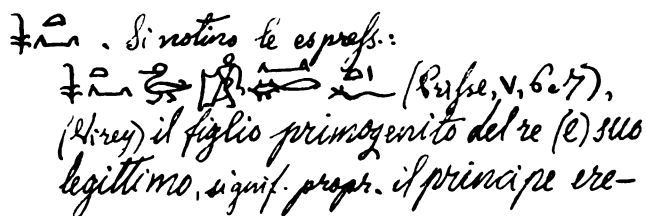 . Si notino le espress.:
(Prisse, V, 6.7),
(Virey) il figlio primogenito del re (e) suo
legittimo, signif. propr. il principe ere-